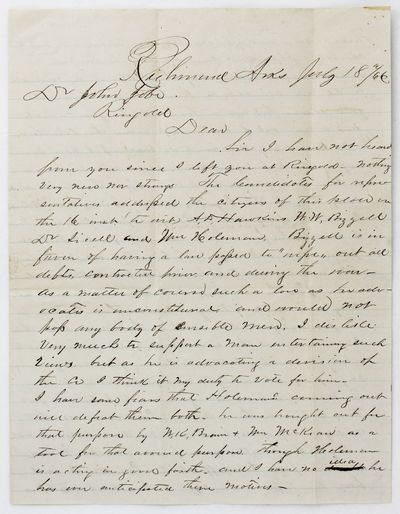 Richmond Arks July 18th/66
Dr John Jobe
Ringold
Dear
Sir I have not heard
from you since I left you at Ringold - nothing
very new nor strange The Candidates for repre
sentatives addressed the citizens of this place on
the 16 inst to wit A B Hawkins W. W. Bizzell
Dr and Wm Holeman, Bizzell is in
favor of having a law passed to "wipe" out all
debts contracted prior and during the war -
As a matter of course such a law as he adv-
ocates is unconstitutional and would not
pass any body of sensible men, I dislike
very much to support a man entertaining such
views but as he is advocating a division of
the Co I think it my duty to vote for him -
I have some fears that Holemans coming out
will defeat them both - he was brought out for
that purpose by W. K. Brown & Wm McKean as a
tool for that avowed purpose though Holeman
is acting in good faith - and I have no idea he
has ever anticipated there motives -